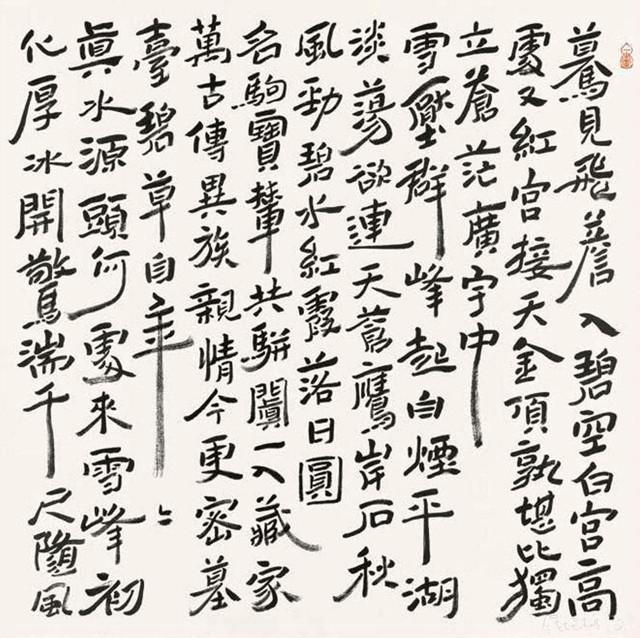 驀見飛簷入碧空白宮高
處又紅宮接天金頂孰堪比獨
立蒼茫廣宇中
雪壓群峰起白煙平湖
淡蕩欲連天蒼鷹岸石秋
風勁碧水紅霞落日圓
名駒寶輦共駢闐一入藏家
萬古傳異族親情今更密墓
臺碧草自年〻
眞水源頭何處來雪峰初
化厚冰開驚湍千尺隨風